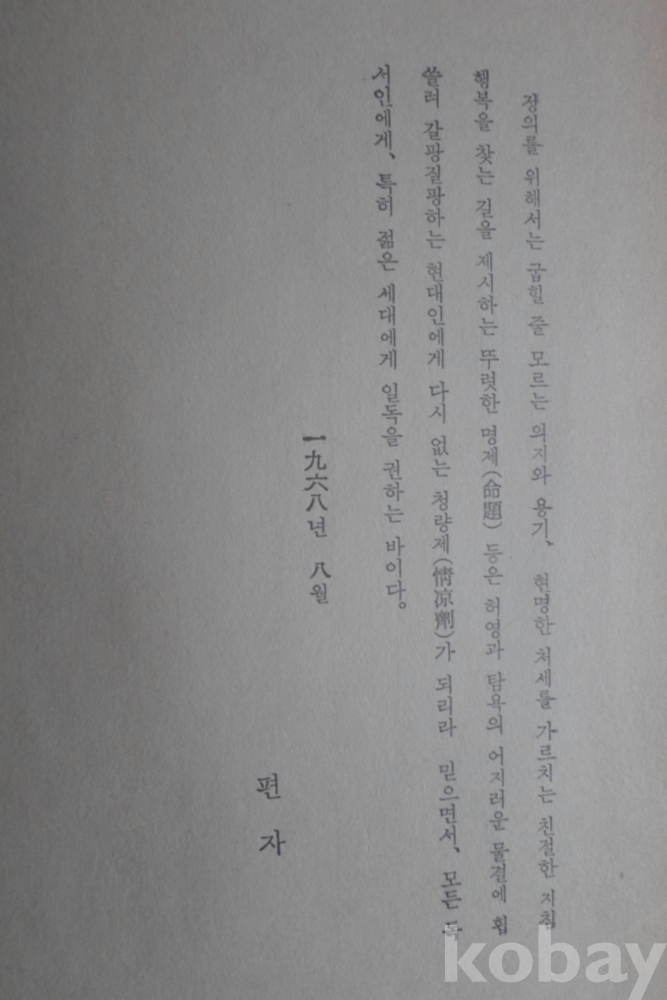 정의를 위해서는 굽힐 줄 모르는 의지와 용기、 현명한 처세를 가르치는 친절한 지침
행복을 찾는 길을 제시하는 뚜렷한 명제(命題) 등은 허영과 탐욕의 어지러운 물결에 휩
쓸려 갈팡질팡하는 현대인에게 다시 없는 청량제(情凉劑)가 되리라 믿으면서、 모든 독
서인에게、 특히 젊은 세대에게 일독을 권하는 바이다。
一九六八년 八월
편 자
kobay